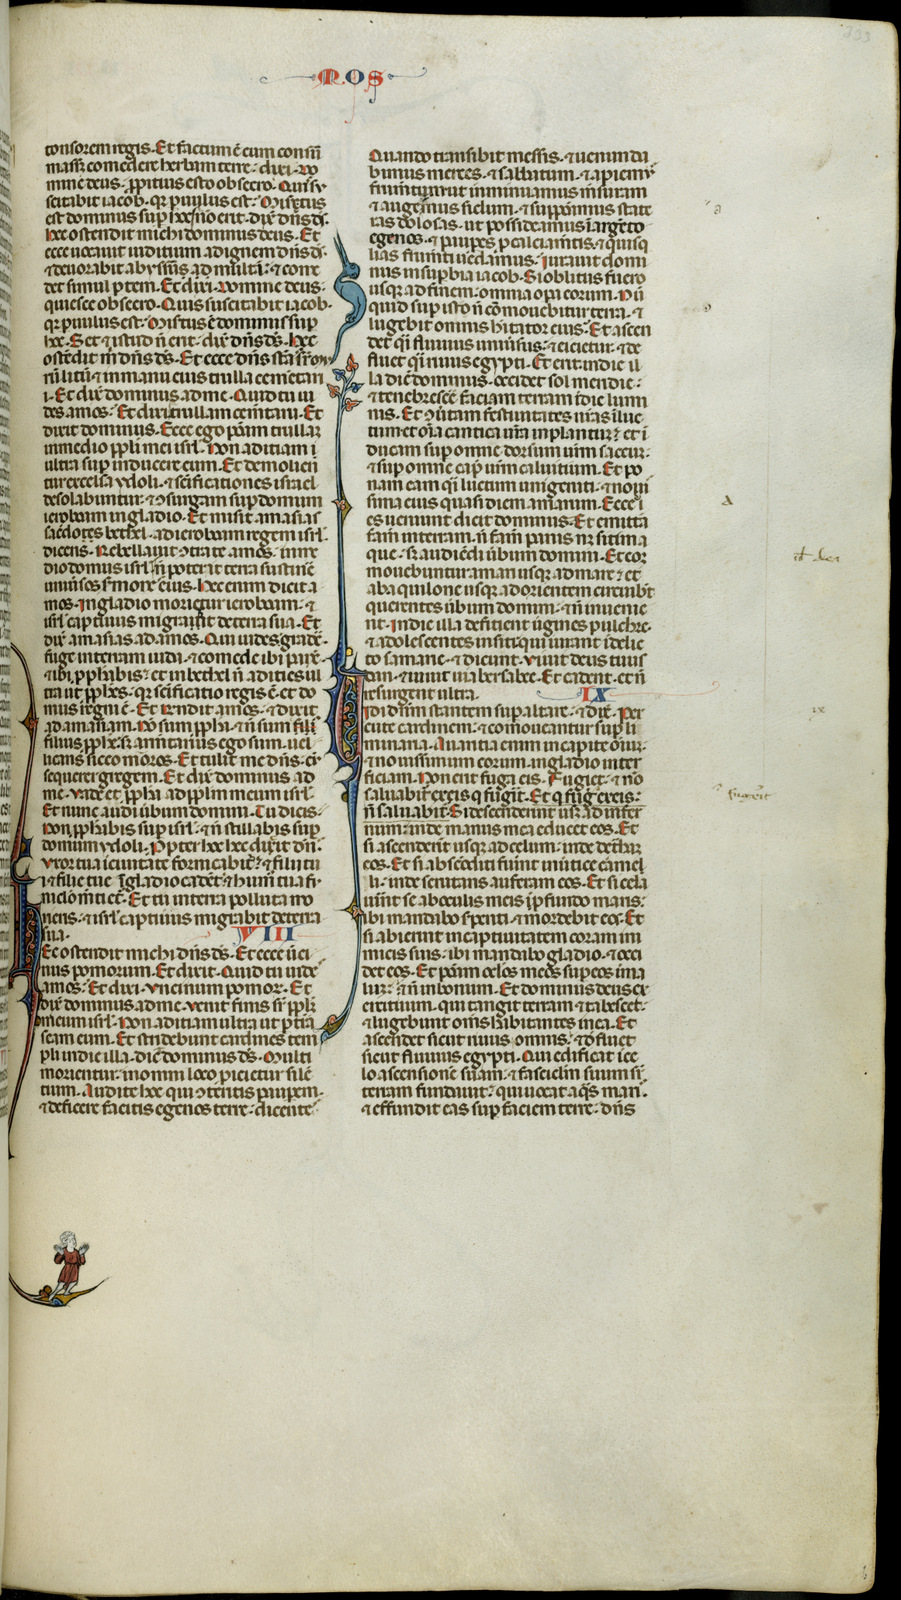 MOS
tonsorem regis. Et factum ē cum consū
masset comedere herbam terre: dixi. Do
mine deus: ppitius esto obsecro. Quis su
scitabit iacob. qr puulus est. Misertus
est dominus sup hoc. nō erit. dix̄ dn̄s ds̄.
hec ostendit michi dominus deus. Et
ecce uocauit iuditium ad ignem dn̄s ds̄.
⁊ deuorabit abyssum ad multū: ⁊ come
det simul ptem. Et dixi. Domine deus:
quiesce obsecro. Quis suscitabit iacob.
qr puulus est. Misertus ē dominus sup
hoc. Set ⁊ istud n̄ erit. dix̄ dn̄s ds̄. Hec
ostēdit m̄ dn̄s ds̄. Et ecce dn̄s stās sr̄ mu
rū litū: ⁊ in manu eius trulla cementari
i. Et dix̄ dominus ad me. Quid tu ui
des amos. Et dixi. trullam cemītarii. Et
dixit dominus. Ecce ego ponam trullam
in medio ppli mei isrl. Non adiciam
ultra sup inducere eum. Et demolien
tur excelsa ydoli. ⁊ scificationes israel
desolabuntur: ⁊ ꝯsurgam sup domum
ieroboam in gladio. Et misit amasias
sacēdotes bethel. ad ieroboam regem isrl.
dicens. Rebellauit ꝯtra te amos. in me
dio domus isrl. n̄ poterit terra sustinē
uniūsos sermōes eius. Hec enim dicit a
mos. In gladio morietur ieroboam: ⁊
isrl captiuus migrabit de terra sua. Et
dix̄ amasias ad amos. Qui uides gradē.
fuge in terram iuda. ⁊ comede ibi panē.
⁊ ibi pphabis: et in bethel n̄ adicies ul
tra ut pphes. qr scificatio regis ē et do
mus regni ē. Et rn̄dit amos. ⁊ dixit
ad amasiam. Nō sum ppha. ⁊ n̄ sum fili
filius pphe. sꝫ armtarius ego sum. uel
licans siccomoros. Et tulit me dn̄s. cū
sequerer gregem. Et dix̄ dominus ad
me. Vade et ppha ad pplm meum isrl.
Et nunc audi ūbum domini. Tu dicis.
Non pphabis sup isrl. ⁊ n̄ stillabis sup
domum ydoli. Propter hoc hec dixit dn̄s.
Vxor tua ī ciuitate fornicabit̄: ⁊ filii tu
i ⁊ filie tue ī gladio cadēt. ⁊ hum̄ tua fu
niclo metiēt. Et tu in terra polluta mo
riens. ⁊ isrl captiuus migrabit de terra
sua.
VIII
Hec ostendit michi dn̄s ds̄. Et ecce ūci
nus pomorum. Et dixit. Quid tu uides
amos. Et dixi. Vncinum pomor̄. Et
dix̄ dominus ad me. Venit finis sr̄ pplm
meum isrl. Non adiciam ultra ut ptrā
seam eum. Et stridebunt cardines tem
pli in die illa. dic̄ dominus ds̄. Multi
morientur. in omni loco picietur silē
tium. Audite hoc qui ꝯteritis pauperem.
⁊ deficere facitis egenos terre: dicentes.
Quando transibit messis. ⁊ uenunda
bimus merces. ⁊ sabbatum. ⁊ apiem
frumtum: ut inminuamus m̄suram
⁊ augeamus siclum. ⁊ supponamus state
ras dolosas. ut possideamus ī argēto
egenos. ⁊ paupes p calciamtis. ⁊ quisq
lias frumti uēdamus. Iurauit domi
nus in supbia iacob. Si oblitus fuero
usqꝫ ad finem. omnia opa eorum. Nū
quid sup isto n̄ cōmouebitur terra. ⁊
lugebit omnis hitator eius. Et ascen
det q̄i fluuius uniūsus: ⁊ eicietur. ⁊ de
fluet q̄i riuus egypti. Et erit in die il
la dic̄ dominus. occidet sol meridie:
⁊ tenebrescē faciam terram ī die lumi
nis. Et ꝯūtam festiuitates uras ī luc
tum: et oīa cantica ura in planctū: et ī
ducam sup omne dorsum urm saccū:
⁊ sup omne cap̄ urm caluitium. Et po
nam eam q̄i luctum unigeniti. ⁊ noui
sima eius quasi diem amarum. Ecce di
es ueniunt dicit dominus. Et emittā
famem in terram. n̄ fam panis nr̄ sitim a
que. sꝫ audiēdi ūbum domini. Et com
mouebuntur a mari usqꝫ ad mare: et
ab aquilone usqꝫ ad orientem circuibt̄
querentes ūbum domini. ⁊ n̄ inuenie
nt. In die illa deficient ūgines pulchre.
⁊ adolescentes in siti. qui iurant ī delic
to samarie. ⁊ dicunt. Viuit deus tuus
dan. ⁊ uiuit uia bersabee. Et cadent. et n̄
resurgent ultra.
IX
Vidi dnm stantem sup altare. ⁊ dix̄. Per
cute cardinem. ⁊ cōmoueantur sup li
minaria. Auaritia enim in capite oīum.
⁊ nouissimum eorum. in gladio inter
ficiam. Non erit fuga eis. Fugiet. ⁊ nō
saluabit̄ ex eis q fugit. Et q fug̉ ex eis:
n̄ saluabit̄. Si descenderint usqꝫ ad infer
num: inde manus mea educet eos. Et
si ascenderit usqꝫ ad celum. inde detham
eos. Et si absconditi fuint in ūtice carmel
li. inde scrutans auferam eos. Et si cela
uint se ab oculis meis ī pfundo maris:
ibi mandabo spenti. ⁊ mordebit eos. Et
si abierint in captiuitatem coram ini
micis suis. ibi mandabo gladio. ⁊ occi
det eos. Et ponam oclos meos sup eos ī ma
lum: ⁊ n̄ in bonum. Et dominus deus ex
ercituum. qui tangit terram ⁊ tabescet:
⁊ lugebunt oms hitantes in ea. Et
ascendet sicut riuus omnis. ⁊ defluet
sicut fluuius egypti. Qui edificat ī ce
lo ascensionē suam. ⁊ fascicłm suum sr̄
terram fundauit: qui uocat aqs maris.
⁊ effundit eas sup faciem terre: dn̄s
fugerit